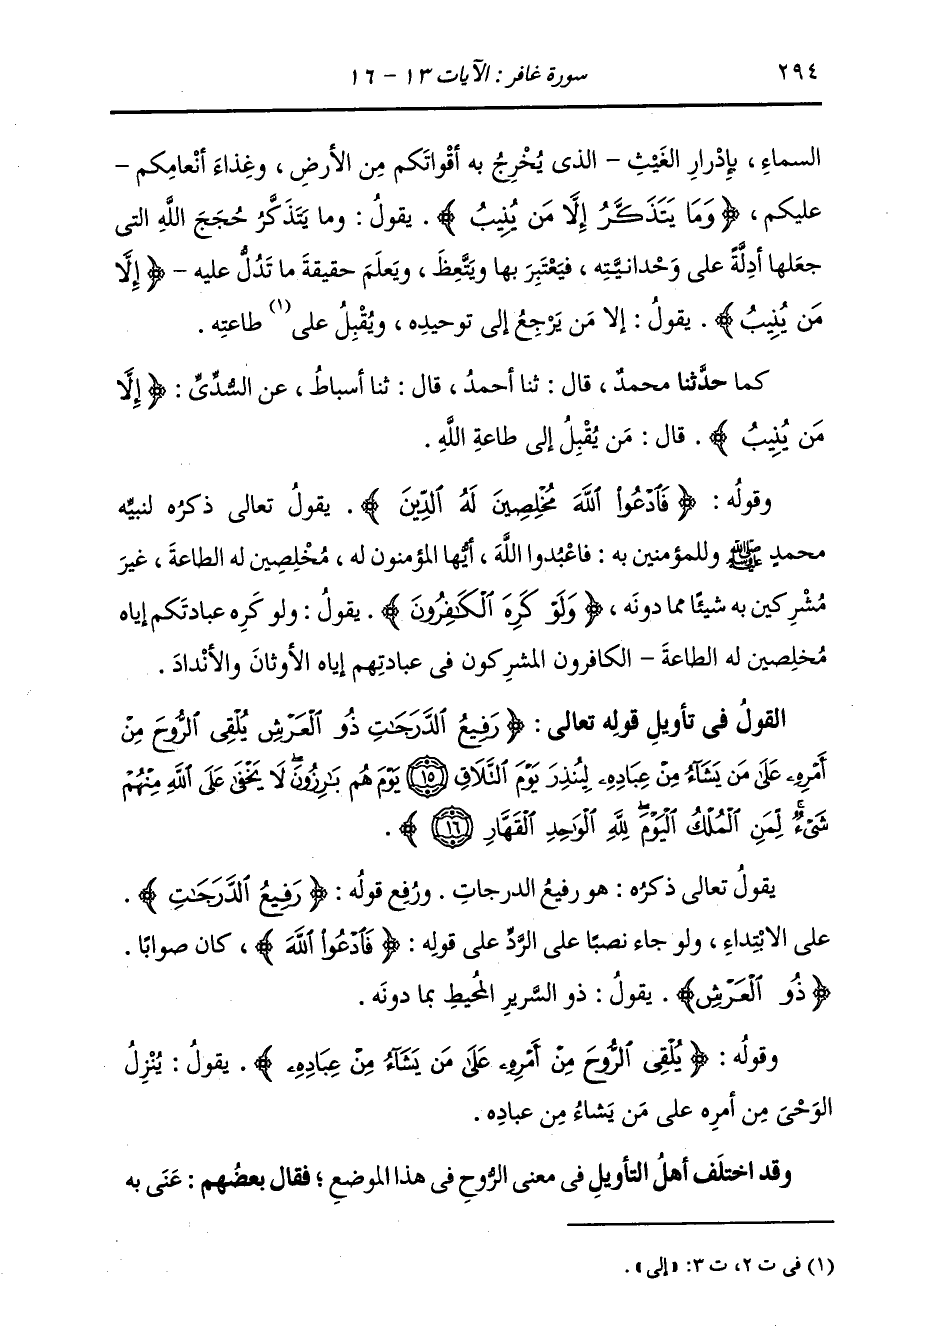 ٢٩٤
سورة غافر : الآيات ١٣ - ١٦
السماءِ ، بإِدْرارِ الغَيْثِ - الذى يُخْرِجُ به أقْواتَكم مِن الأرضِ ، وغِذاءَ أنْعامِكم -
عليكم ، ﴿ وَمَا يَتَذَكَّرُ إِلَّا مَن يُنِيبُ ﴾ . يقولُ : وما يَتَذَكَّرُ حُجَجَ اللَّهِ التى
جعَلها أدِلَّةً على وَحْدانيَّتِه ، فيَعْتَبِرَ بها ويَتَّعِظَ ، ويَعلَمَ حقيقةَ ما تَدُلُّ عليه - ﴿ إِلَّا
مَن يُنِيبُ ﴾ . يقولُ : إلا مَن يَرْجِعُ إلى توحيدِه ، ويُقْبِلُ على(١) طاعتِه .
كما حدَّثنا محمدٌ ، قال : ثنا أحمدُ ، قال : ثنا أسباطُ ، عن السُّدِّىِّ : ﴿ إِلَّا
مَن يُنِيبُ ﴾ . قال : مَن يُقْبِلُ إلى طاعةِ اللَّهِ .
وقولُه : ﴿ فَٱدْعُوا۟ ٱللَّهَ مُخْلِصِينَ لَهُ ٱلدِّينَ ﴾ . يقولُ تعالى ذكرُه لنبيِّه
محمدٍ ﷺ وللمؤمنين به : فاعْبُدوا اللَّهَ ، أيُّها المؤمنون له ، مُخْلِصِين له الطاعةَ ، غيرَ
مُشْرِكين به شيئًا مما دونَه ، ﴿ وَلَوْ كَرِهَ ٱلْكَٰفِرُونَ ﴾ . يقولُ : ولو كَرِه عبادتَكم إياه
مُخلِصين له الطاعةَ - الكافرون المشركون فى عبادتِهم إياه الأوثانَ والأنْدادَ .
القولُ فى تأويلِ قولِه تعالى : ﴿ رَفِيعُ ٱلدَّرَجَٰتِ ذُو ٱلْعَرْشِ يُلْقِى ٱلرُّوحَ مِنْ
أَمْرِهِۦ عَلَىٰ مَن يَشَآءُ مِنْ عِبَادِهِۦ لِيُنذِرَ يَوْمَ ٱلتَّلَاقِ ١٥ يَوْمَ هُم بَٰرِزُونَۖ لَا يَخْفَىٰ عَلَى ٱللَّهِ مِنْهُمْ
شَىْءٌۚ لِّمَنِ ٱلْمُلْكُ ٱلْيَوْمَۖ لِلَّهِ ٱلْوَٰحِدِ ٱلْقَهَّارِ ١٦ ﴾ .
يقولُ تعالى ذكرُه : هو رفيعُ الدرجاتِ . ورُفِع قولُه : ﴿ رَفِيعُ ٱلدَّرَجَٰتِ ﴾ .
على الابْتِداءِ ، ولو جاء نصبًا على الرَّدِّ على قولِه : ﴿ فَٱدْعُوا۟ ٱللَّهَ ﴾ ، كان صوابًا .
﴿ ذُو ٱلْعَرْشِ ﴾ . يقولُ : ذو السَّريرِ المُحيطِ بما دونَه .
وقولُه : ﴿ يُلْقِى ٱلرُّوحَ مِنْ أَمْرِهِۦ عَلَىٰ مَن يَشَآءُ مِنْ عِبَادِهِۦ ﴾ . يقولُ : يُنْزِلُ
الوَحْىَ مِن أمرِه على مَن يَشاءُ مِن عبادِه .
وقد اختلَف أهلُ التأويلِ فى معنى الرُّوحِ فى هذا الموضعِ ؛ فقال بعضُهم : عَنَى به
(١) فى ت ٢، ت ٣: «إلى» .